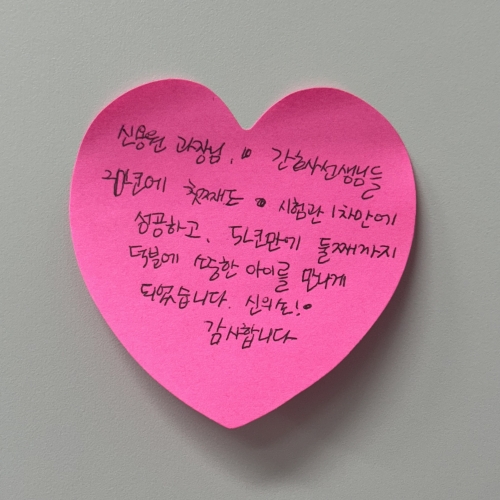 신용원 과장님, 간호사선생님들
20년에 첫째도 시험관 1차만에
성공하고, 5년만에 둘째까지
덕분에 소중한 아이를 만나게
되었습니다. 신의손!
감사합니다